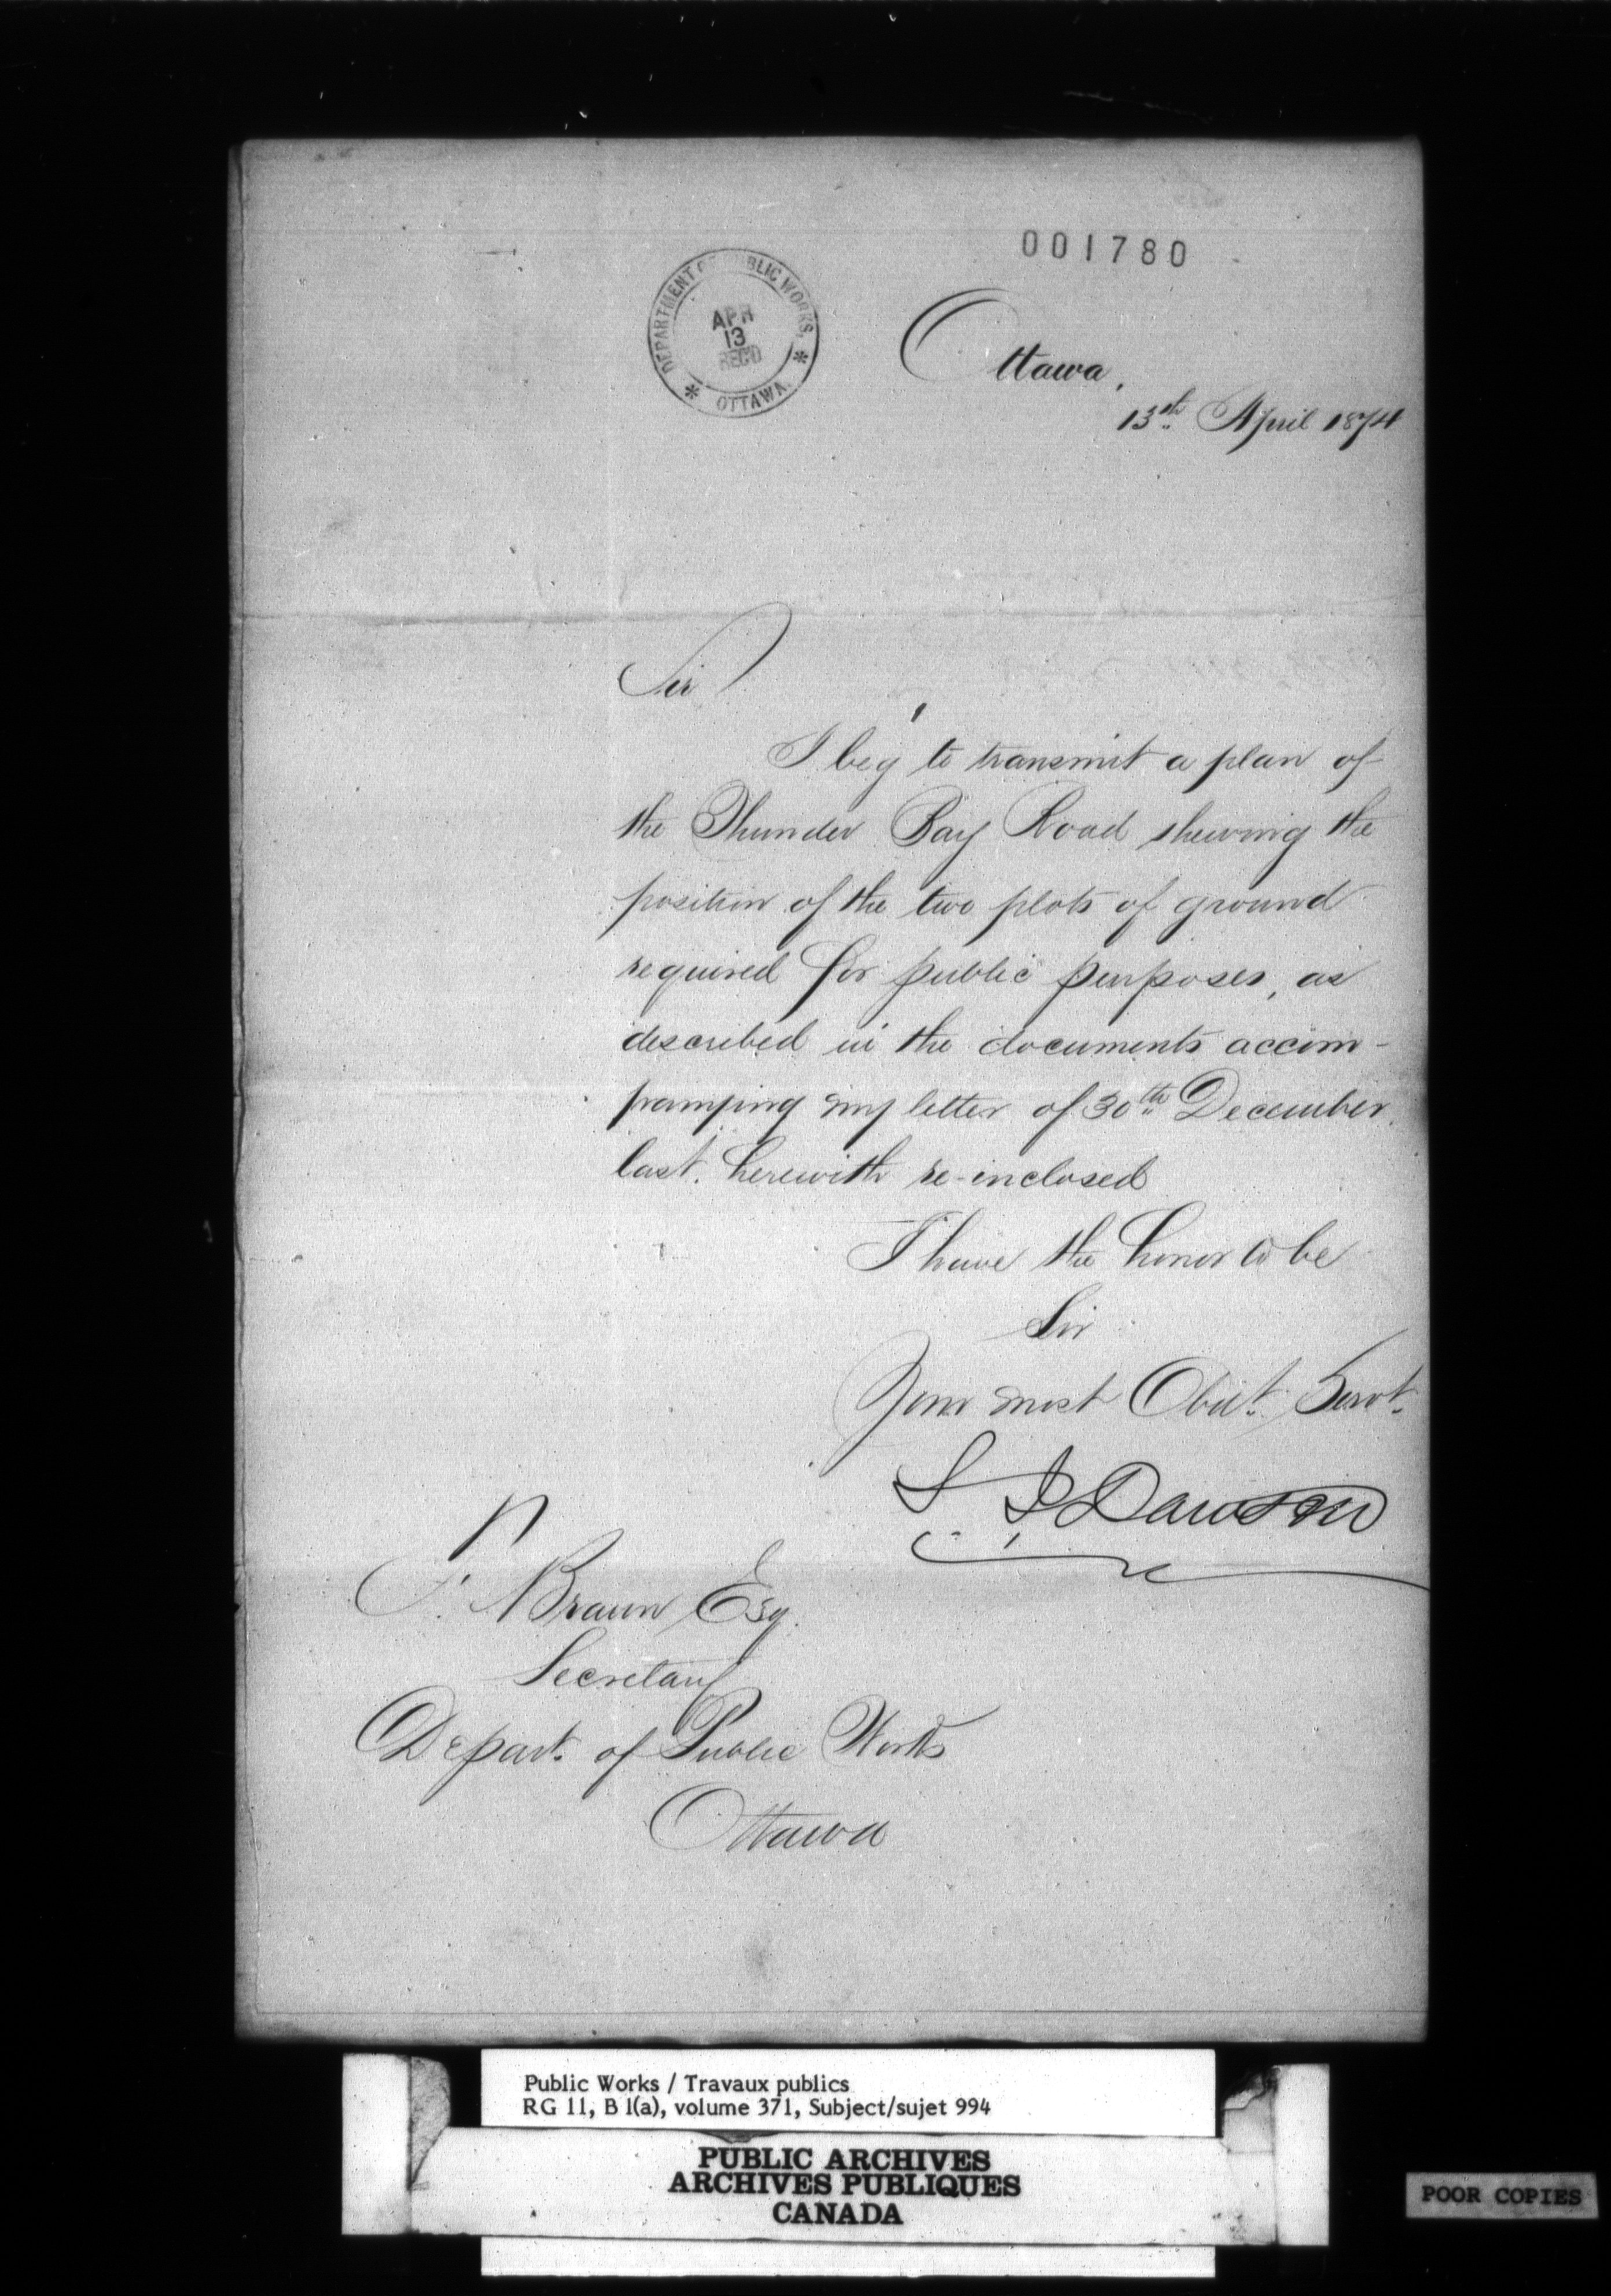 001780
DEPARTMENT OF PUBLIC WORKS,
APR
13
REC'D
* OTTAWA. *
Ottawa,
13th April 1874
Sir
I beg to transmit a plan of
the Thunder Bay Road shewing the
position of the two plots of ground
required for public purposes, as
described in the documents accom-
panying my letter of 30th December
last. herewith re-inclosed
I have the honor to be
Sir
Your most Obdt. Servt.
S J Dawson
F. Braun Esq.
Secretary
Depart. of Public Works
Ottawa
Public Works / Travaux publics
RG 11, B 1(a), volume 371, Subject/sujet 994
PUBLIC ARCHIVES
ARCHIVES PUBLIQUES
CANADA
POOR COPIES